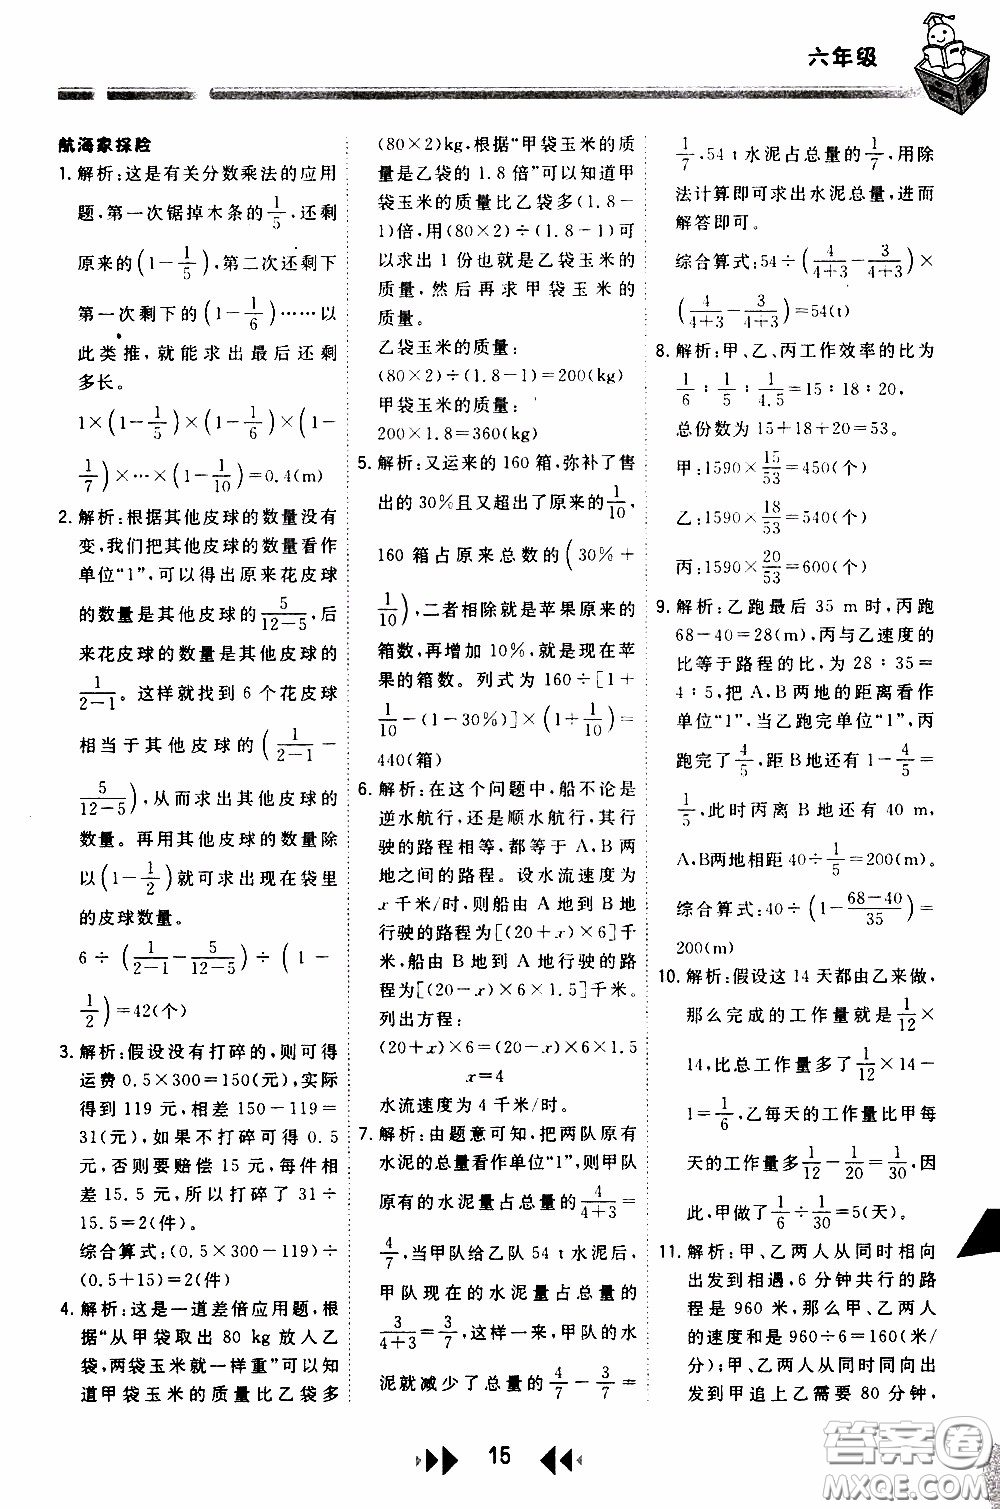 六年级
航海家探险
1. 解析:这是有关分数乘法的应用
题,第一次锯掉木条的1/5,还剩
原来的(1-1/5),第二次还剩下
第一次剩下的(1-1/6)……以
此类推,就能求出最后还剩
多长。
1×(1-1/5)×(1-1/6)×(1-
1/7)×…×(1-1/10)=0.4(m)
2. 解析:根据其他皮球的数量没有
变,我们把其他皮球的数量看作
单位“1”,可以得出原来花皮球
的数量是其他皮球的5/(12-5),后
来花皮球的数量是其他皮球的
1/(2-1)。这样就找到 6 个花皮球
相当于其他皮球的(1/(2-1)-
5/(12-5)),从而求出其他皮球的
数量。再用其他皮球的数量除
以(1-1/2)就可求出现在袋里
的皮球数量。
6÷(1/(2-1)-5/(12-5))÷(1-
1/2)=42(个)
3. 解析:假设没有打碎的,则可得
运费 0.5×300=150(元),实际
得到 119 元,相差 150-119=
31(元),如果不打碎可得 0.5
元,否则要赔偿 15 元,每件相
差 15.5 元,所以打碎了 31÷
15.5=2(件)。
综合算式:(0.5×300-119)÷
(0.5+15)=2(件)
4. 解析:这是一道差倍应用题,根
据“从甲袋取出 80 kg 放入乙
袋,两袋玉米就一样重”可以知
道甲袋玉米的质量比乙袋多
(80×2)kg,根据“甲袋玉米的质
量是乙袋的 1.8 倍”可以知道甲
袋玉米的质量比乙袋多(1.8-
1)倍,用(80×2)÷(1.8-1)可
以求出 1 份也就是乙袋玉米的
质量,然后再求甲袋玉米的
质量。
乙袋玉米的质量:
(80×2)÷(1.8-1)=200(kg)
甲袋玉米的质量:
200×1.8=360(kg)
5. 解析:又运来的 160 箱,弥补了售
出的 30%且又超出了原来的1/10,
160 箱占原来总数的(30%+
1/10),二者相除就是苹果原来的
箱数,再增加 10%,就是现在苹
果的箱数。列式为 160÷[1+
1/10-(1-30%)]×(1+1/10)=
440(箱)
6. 解析:在这个问题中,船不论是
逆水航行,还是顺水航行,其行
驶的路程相等,都等于 A、B 两
地之间的路程。设水流速度为
x 千米/时,则船由 A 地到 B 地
行驶的路程为[(20+x)×6]千
米,船由 B 地到 A 地行驶的路
程为[(20-x)×6×1.5]千米。
列出方程:
(20+x)×6=(20-x)×6×1.5
x=4
水流速度为 4 千米/时。
7. 解析:由题意可知,把两队原有
水泥的总量看作单位“1”,则甲队
原有的水泥量占总量的4/(4+3)=
4/7,当甲队给乙队 54 t 水泥后,
甲队现在的水泥量占总量的
3/(4+3)=3/7,这样一来,甲队的水
泥就减少了总量的4/7-3/7=
1/7,54 t 水泥占总量的1/7,用除
法计算即可求出水泥总量,进而
解答即可。
综合算式:54÷(4/(4+3)-3/(4+3))×
(4/(4+3)-3/(4+3))=54(t)
8. 解析:甲、乙、丙工作效率的比为
1/6:1/5:1/4.5=15:18:20,
总份数为 15+18+20=53。
甲:1590×15/53=450(个)
乙:1590×18/53=540(个)
丙:1590×20/53=600(个)
9. 解析:乙跑最后 35 m 时,丙跑
68-40=28(m),丙与乙速度的
比等于路程的比,为 28:35=
4:5,把 A、B 两地的距离看作
单位“1”,当乙跑完单位“1”,丙
跑完了4/5,距 B 地还有 1-4/5=
1/5,此时丙离 B 地还有 40 m,
A、B两地相距 40÷1/5=200(m)。
综合算式:40÷(1-(68-40)/35)=
200(m)
10. 解析:假设这 14 天都由乙来做,
那么完成的工作量就是1/12×
14,比总工作量多了1/12×14-
1=1/6,乙每天的工作量比甲每
天的工作量多1/12-1/20=1/30,因
此,甲做了1/6÷1/30=5(天)。
11. 解析:甲、乙两人从同时相向
出发到相遇,6 分钟共行的路
程是 960 米,那么甲、乙两人
的速度和是 960÷6=160(米/
分);甲、乙两人从同时同向出
发到甲追上乙需要 80 分钟,
15
答案圈
MXQE.COM